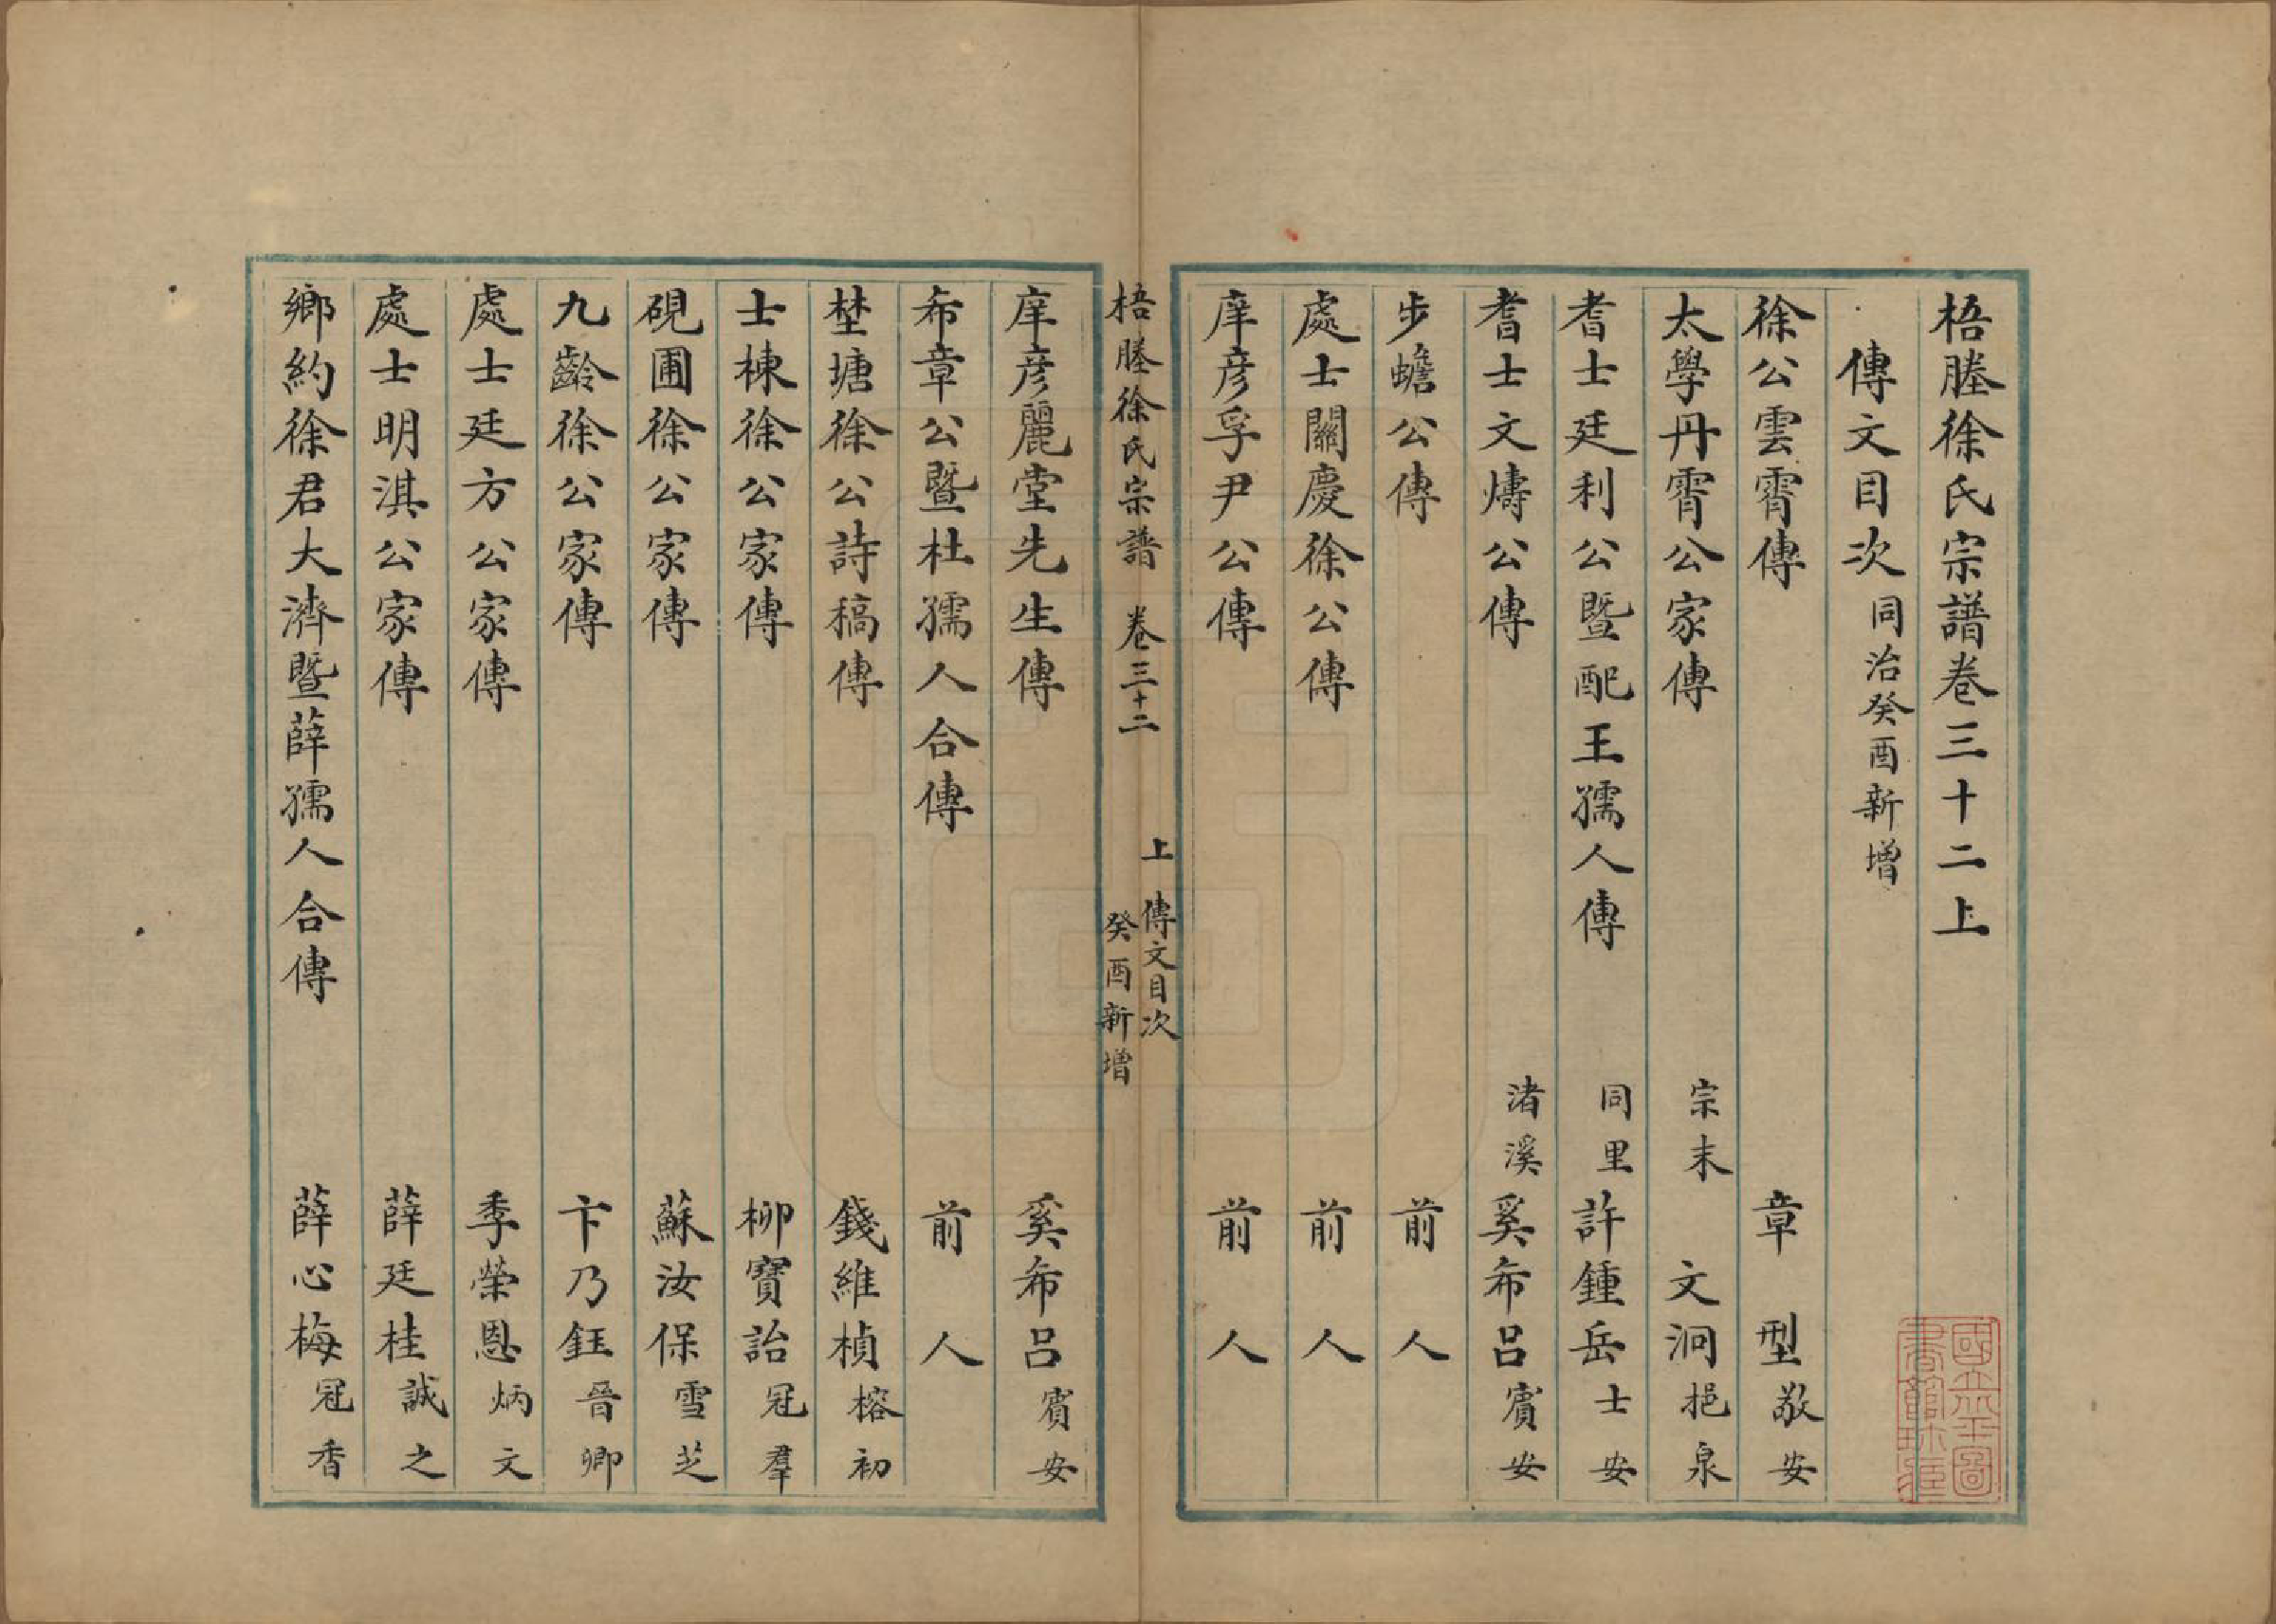 梧塍徐氏宗譜卷三十二上
傳文目次同治癸酉新增
徐公雲霄傳 章型敬安
太學丹霄公家傳 宗末文洞挹泉
耆士廷利公暨配王孺人傳 同里許鍾岳士安
耆士文燽公傳 渚溪奚布呂賓安
步蟾公傳 前人
處士關慶徐公傳 前人
庠彦孚尹公傳 前人
梧塍徐氏宗譜 卷三十二 上 傳文目次 癸酉新增
庠彦麗堂先生傳 奚布呂賓安
布章公暨杜孺人合傳 前人
埜塘徐公詩稿傳 錢維楨榕初
士棟徐公家傳 柳寶詒冠羣
硯圃徐公家傳 蘇汝保雪芝
九齡徐公家傳 卞乃鈺晉卿
處士廷方公家傳 季榮恩炳文
處士明淇公家傳 薛廷桂誠之
鄉約徐君大濟暨薛孺人合傳 薛心梅冠香